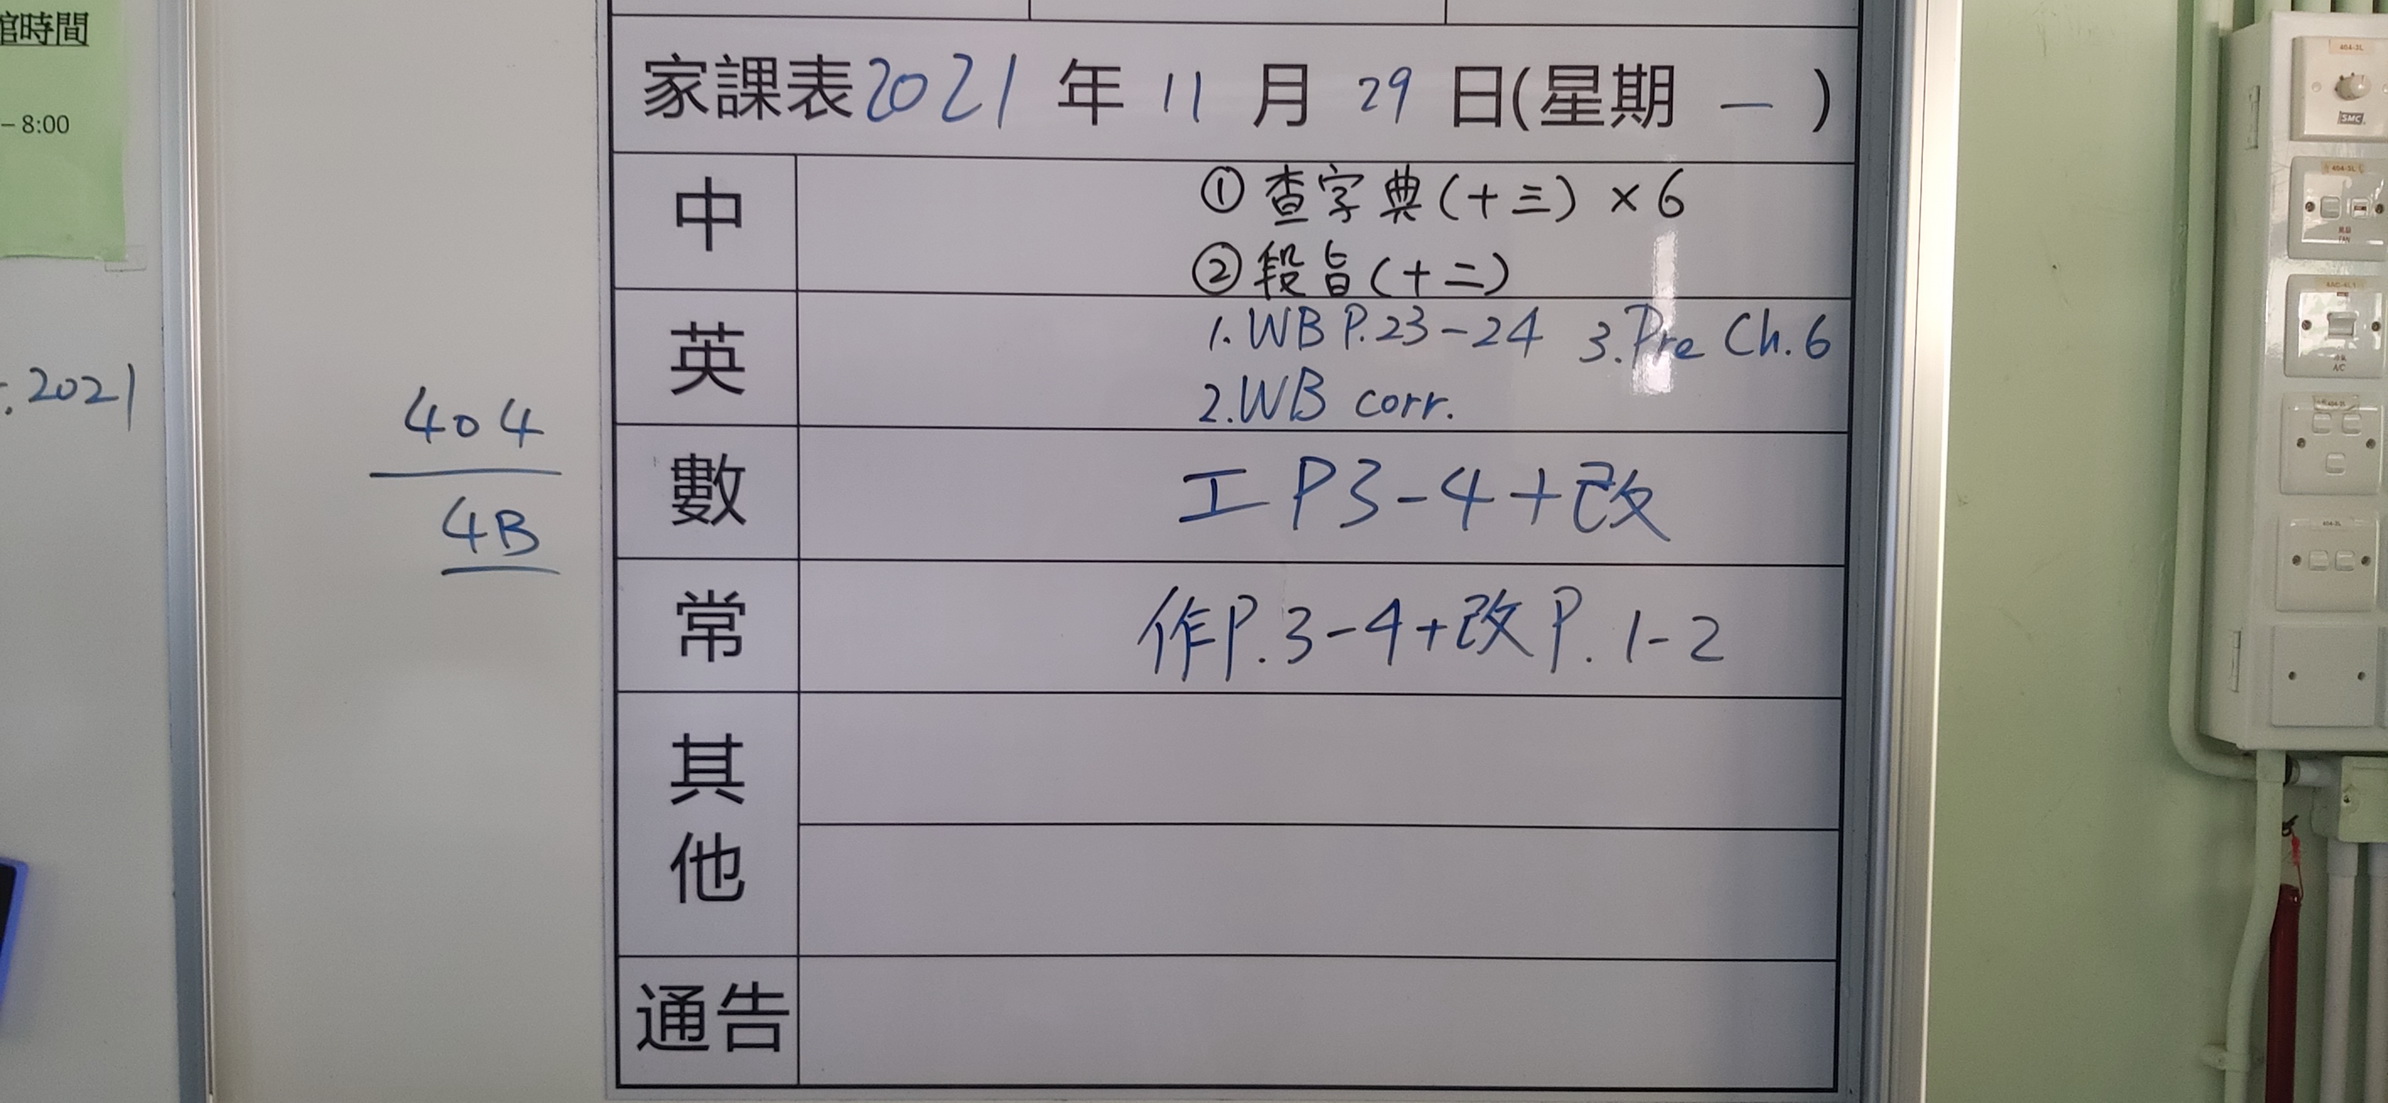 館時間
– 8:00
. 2021
404
4B
家課表2021 年 11 月 29 日(星期 一 )
中
① 查字典(十三) × 6
② 段旨(十二)
英
1. WB P.23-24 3. Pre Ch.6
2. WB corr.
數
工 P3-4+改
常
作P.3-4+改P. 1-2
其他
通告
SMC
A/C